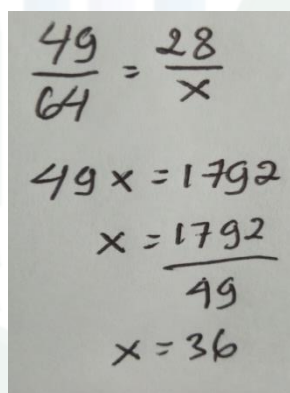 49/64 = 28/x
49x = 1792
x = 1792/49
x = 36